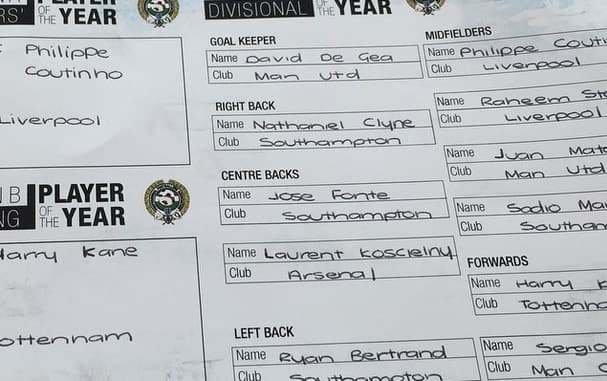 PLAYER
RS' OF THE YEAR
Philippe
Coutinho
Liverpool
PLAYER
NG OF THE YEAR
Harry Kane
ottenham
DIVISIONAL OF THE YEAR
GOAL KEEPER
Name David De Gea
Club Man Utd
RIGHT BACK
Name Nathaniel Clyne
Club Southampton
CENTRE BACKS
Name Jose Fonte
Club Southampton
Name Laurent Koscielny
Club Arsenal
LEFT BACK
Name Ryan Bertrand
Club Southampton
MIDFIELDERS
Name Philippe Coutin
Club Liverpool
Name Raheem Ste
Club Liverpool
Name Juan Mat
Club Man Utd
Name Sadio Ma
Club Southam
FORWARDS
Name Harry K
Club Tottenh
Name Sergio
Club Man C